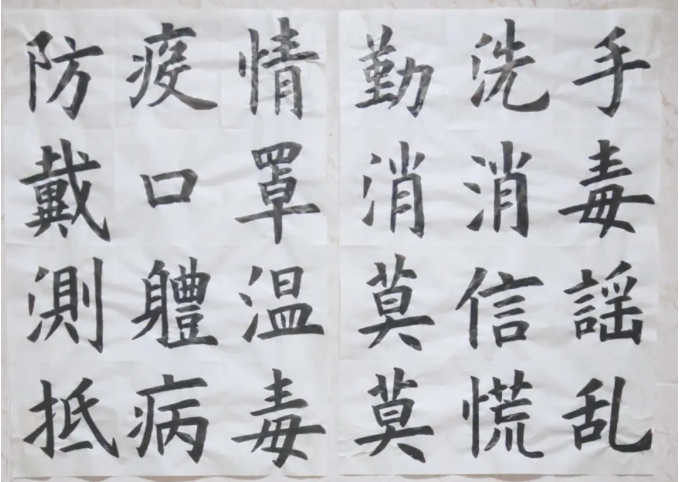 防疫情 勤洗手
戴口罩 消消毒
測軆温 莫信謡
抵病毒 莫慌乱